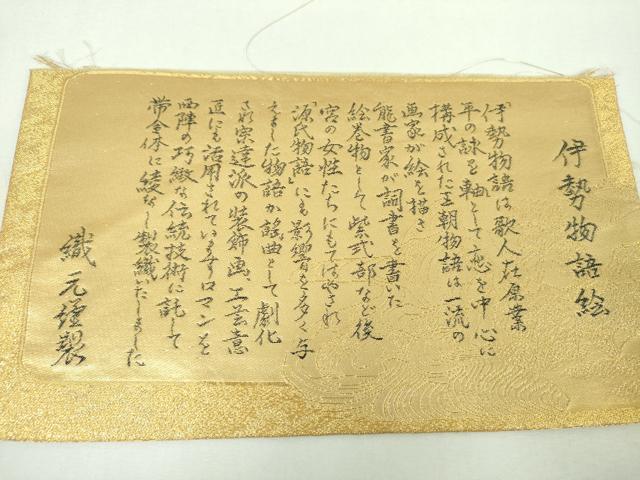 伊勢物語絵
『伊勢物語は歌人在原業
平の詠を軸として恋を中心に
構成された王朝物語は一流の
画家が絵を描き
能書家が詞書を書いた
絵巻物として紫式部など後
宮の女性たちにもてはやされ
『源氏物語』にも影響を多く与
えました物語が謡曲として劇化
され宗達派の装飾画、工芸意
匠にも活用されていますロマンを
西陣の巧緻な伝統技術に託して
帯全体に綾なし製織いたしました
織元謹製